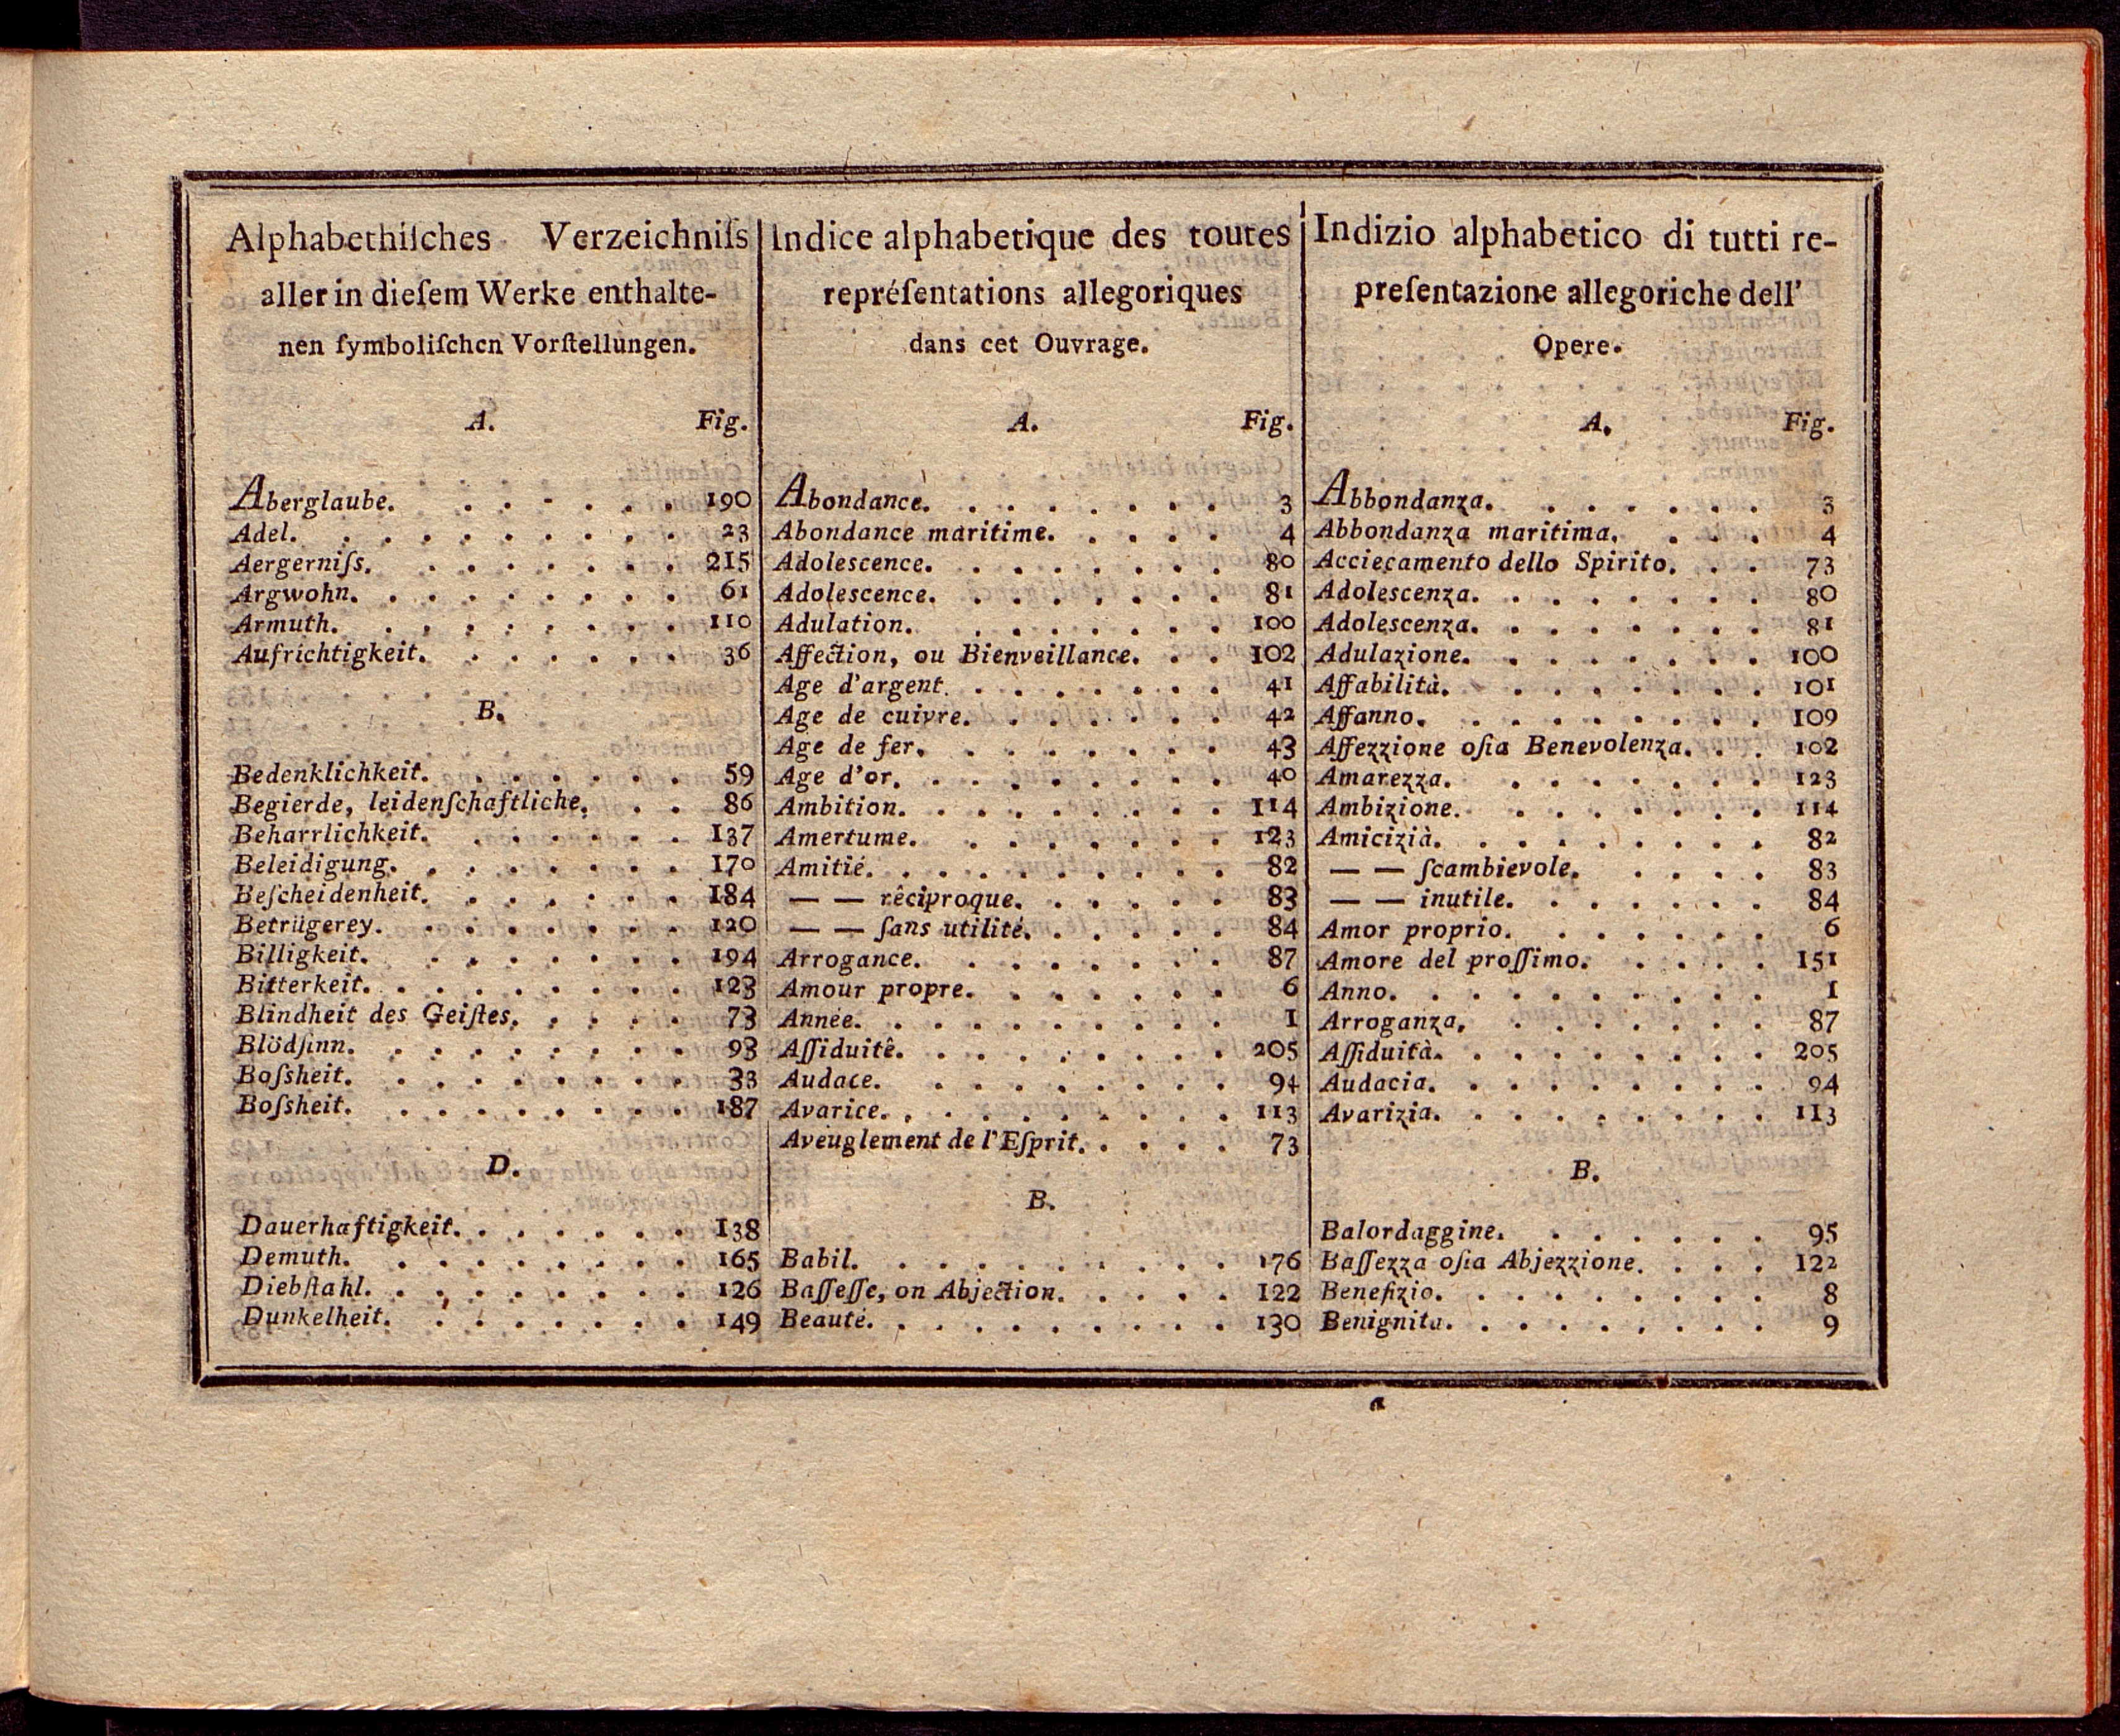 Alphabethiſches Verzeichniſs
aller in dieſem Werke enthalte-
nen ſymboliſchen Vorſtellungen.
A. Fig.
Aberglaube. 190
Adel. 23
Aergerniſs. 215
Argwohn. 61
Armuth. 110
Aufrichtigkeit. 36
B.
Bedenklichkeit. 59
Begierde, leidenſchaftliche. 86
Beharrlichkeit. 137
Beleidigung. 170
Beſcheidenheit. 184
Betrügerey. 120
Billigkeit. 194
Bitterkeit. 123
Blindheit des Geiſtes. 73
Blödſinn. 93
Boſsheit. 33
Boſsheit. 187
D.
Dauerhaftigkeit. 138
Demuth. 165
Diebſtahl. 126
Dunkelheit. 149
Indice alphabetique des toutes
repréſentations allegoriques
dans cet Ouvrage.
A. Fig.
Abondance. 3
Abondance maritime. 4
Adolescence. 80
Adolescence. 81
Adulation. 100
Affection, ou Bienveillance. 102
Age d'argent. 41
Age de cuivre. 42
Age de fer. 43
Age d'or. 40
Ambition. 114
Amertume. 123
Amitié. 82
— — rêciproque. 83
— — ſans utilité. 84
Arrogance. 87
Amour propre. 6
Année. 1
Aſſiduitê. 205
Audace. 94
Avarice. 113
Aveuglement de l'Eſprit. 73
B.
Babil. 176
Baſſeſſe, on Abjection. 122
Beauté. 130
Indizio alphabetico di tutti re-
preſentazione allegoriche dell'
Opere.
A. Fig.
Abbondanza. 3
Abbondanza maritima. 4
Acciecamento dello Spirito. 73
Adolescenza. 80
Adolescenza. 81
Adulazione. 100
Affabilità. 101
Affanno. 109
Affezzione oſia Benevolenza. 102
Amarezza. 123
Ambizione. 114
Amicizià. 82
— — ſcambievole. 83
— — inutile. 84
Amor proprio. 6
Amore del proſſimo. 151
Anno. 1
Arroganza. 87
Aſſiduità. 205
Audacia. 94
Avarizia. 113
B.
Balordaggine. 95
Baſſezza oſia Abjezzione. 122
Benefizio. 8
Benignita. 9
a